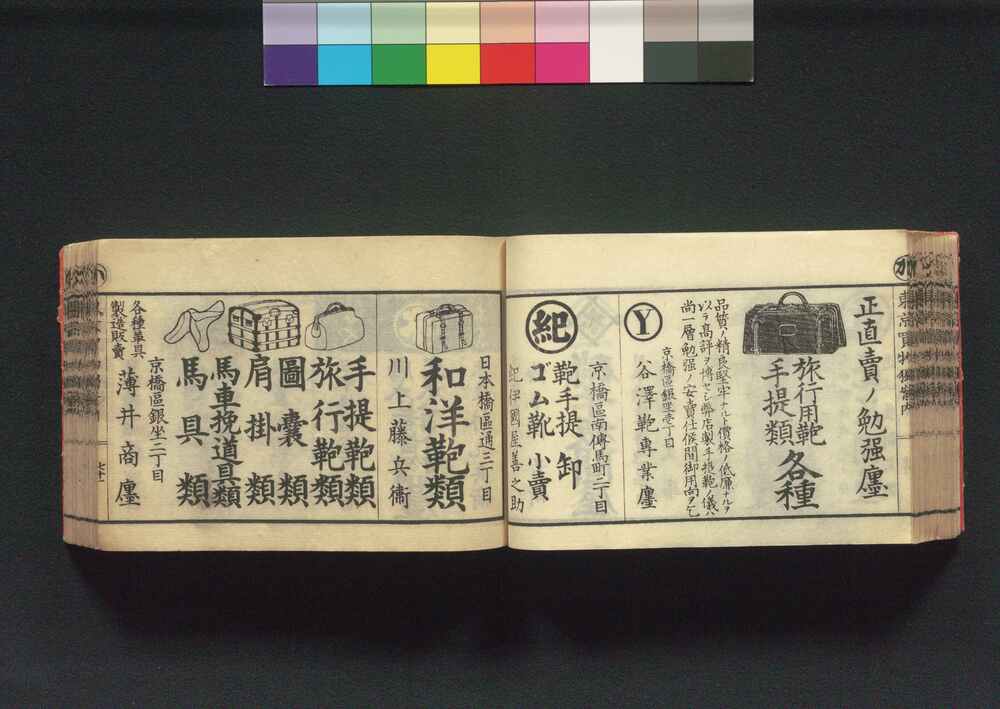 正直賣ノ勉强廛
旅行用鞄
手提類
各種
品質ノ精良堅牢ナルト價格ノ低廉ナルヲ
以テ高評ヲ博セシ弊店製手提鞄ノ儀ハ
尚一層勉强ノ安賣仕候間御用向ヲ乞
京橋區銀座壱丁目
Y
谷澤鞄專業廛
京橋區南傳馬町二丁目
紀
鞄手提 卸
ゴム靴 小賣
紀伊國屋善之助
日本橋區通三丁目
和洋鞄類
川上藤兵衞
手提鞄類
旅行鞄類
圖嚢類
肩掛類
馬車挽道具類
馬具類
京橋區銀坐二丁目
各種革具
製造販賣
薄井商廛